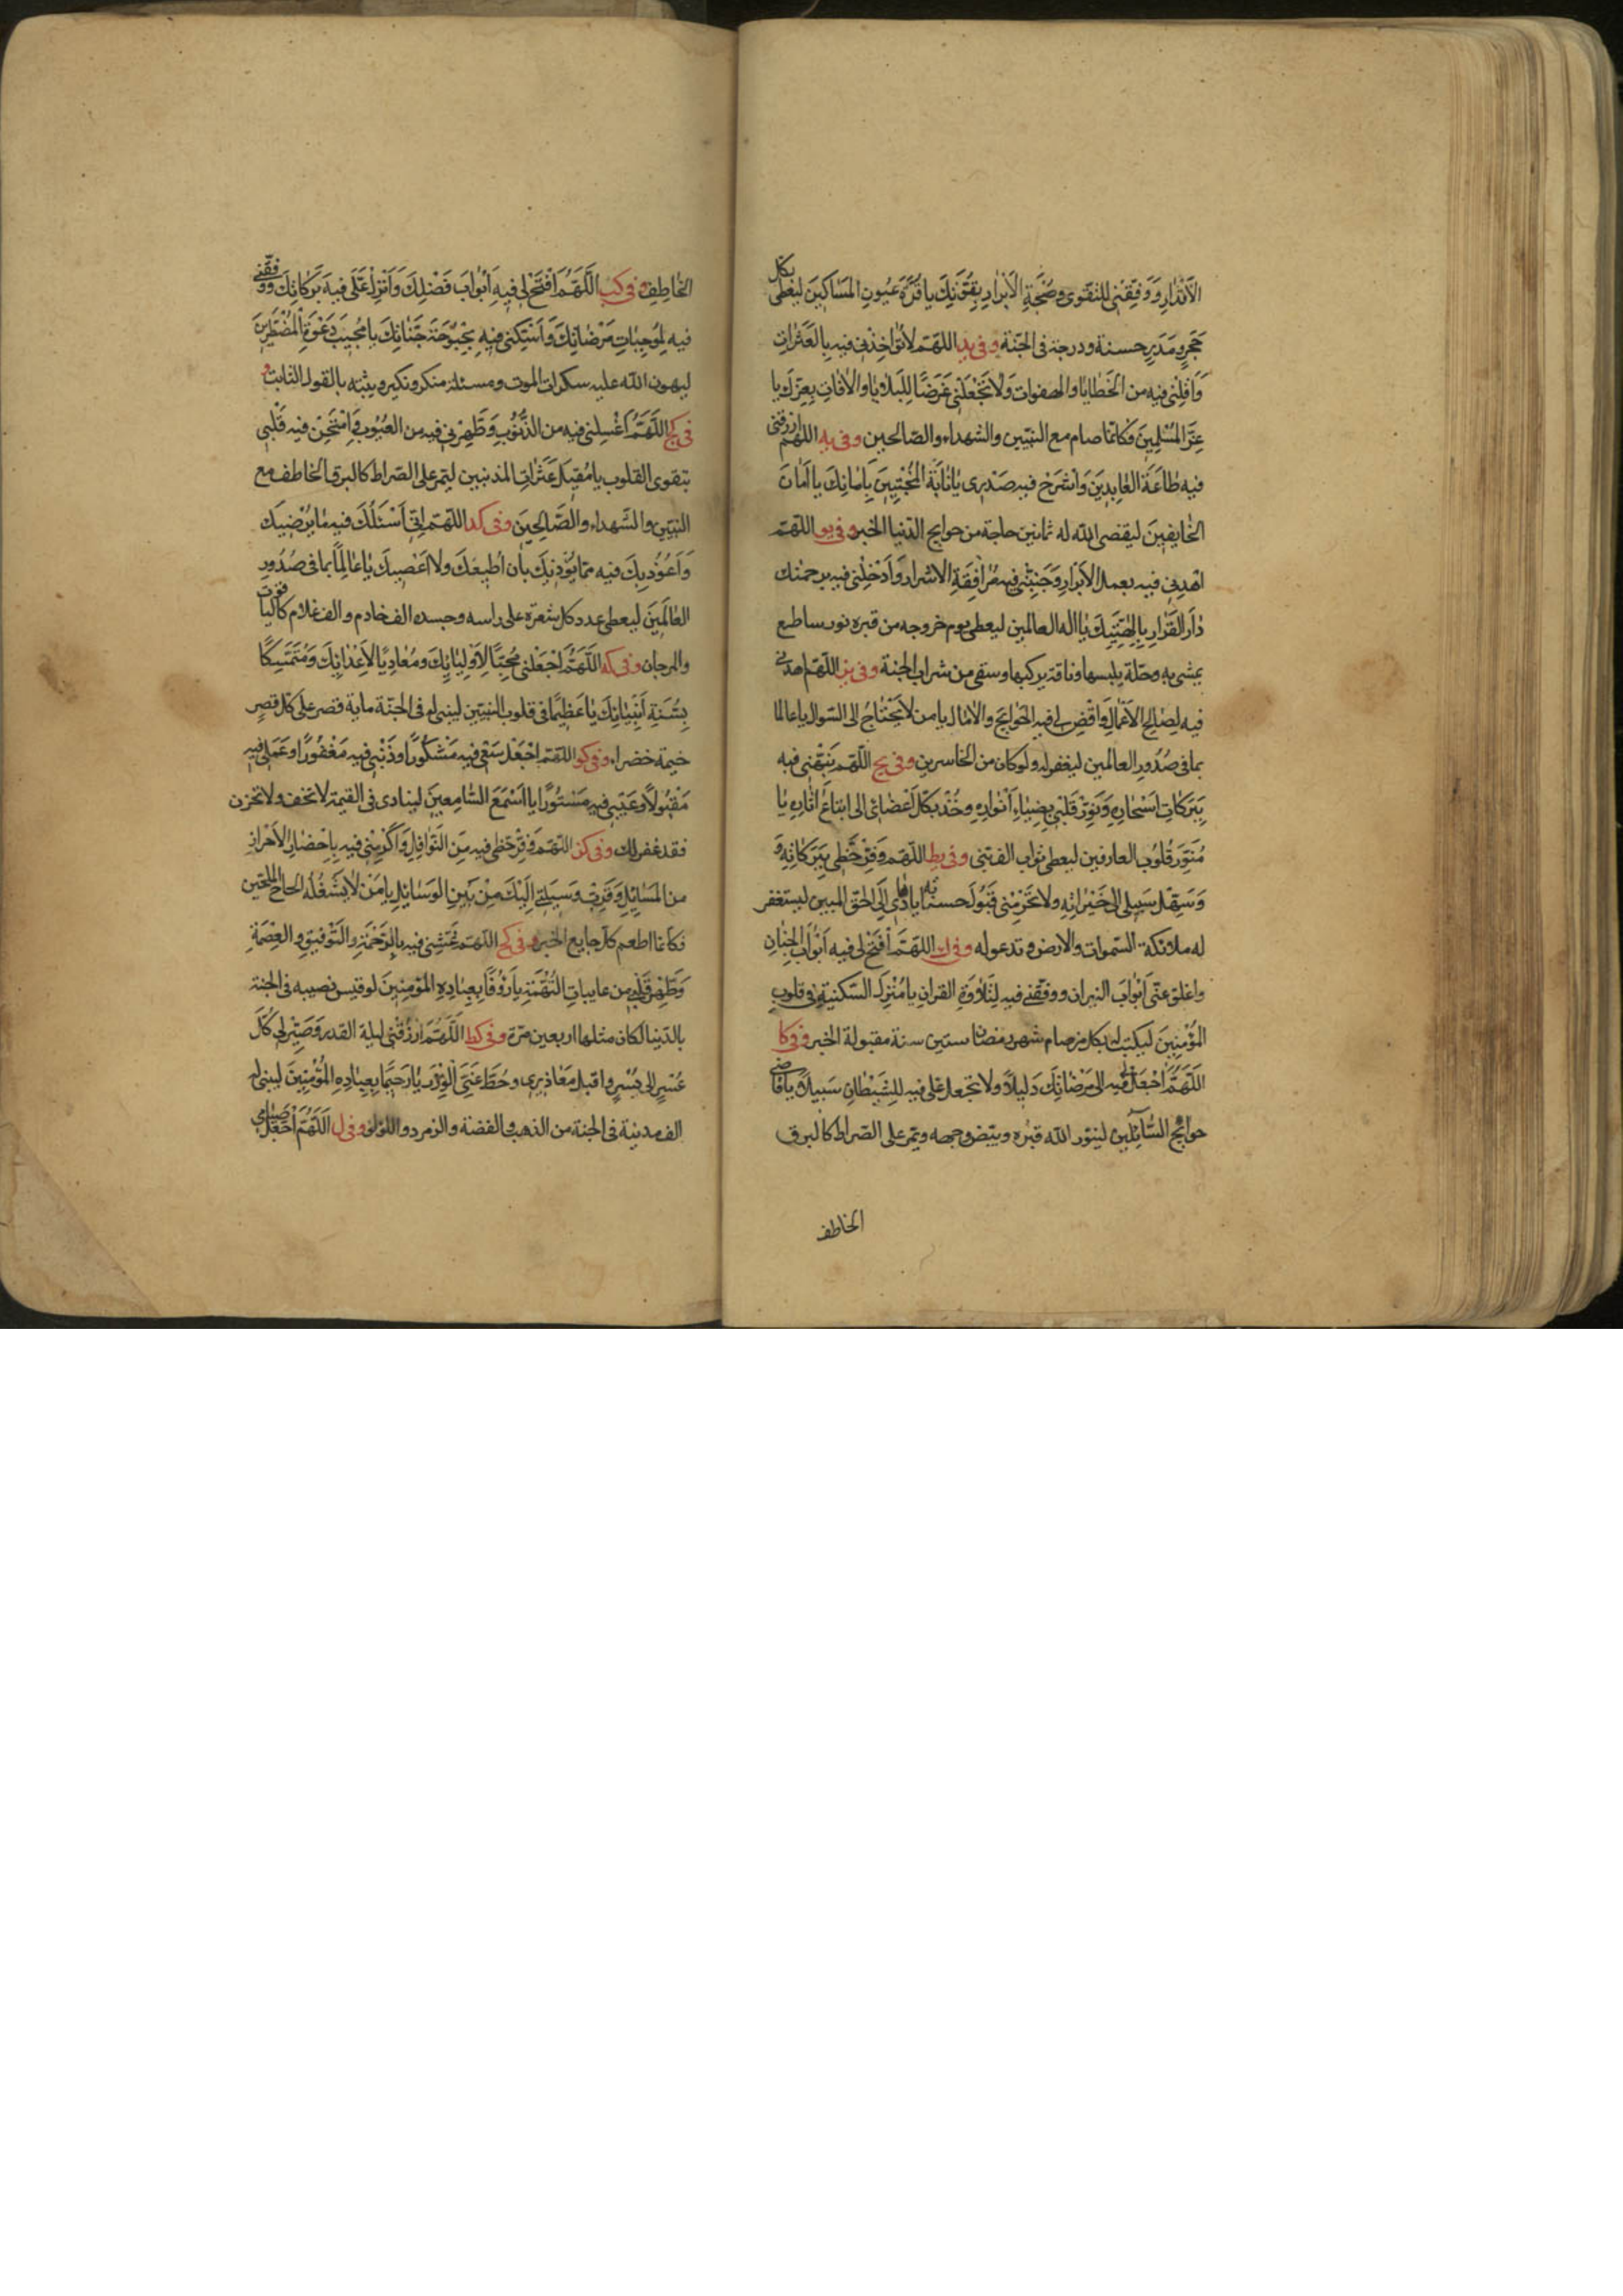 الأقدار ووفقني للتقوى وصحبة الأبرار بقوتك يا قرة عيون المساكين ليعطى بكل
حجر ومدر حسنة ودرجة في الجنة وفي يد اللهم لا تؤاخذني فيه بالعثرات
واقلني فيه من الخطايا والهفوات ولا تجعلني غرضا للبلايا والآفات بعزك يا
عز المسلمين فكانما صام مع النبيين والشهداء والصالحين وفي يه اللهم ارزقني
فيه طاعة العابدين واشرح فيه صدري بانابة المخبتين بامانك يا امان
الخايفين ليقضي الله له ثمانين حاجة من حوايج الدنيا الخبر وفي يو اللهم
اهدني فيه بعمل الابرار وجنبني فيه مرافقة الاشرار وأدخلني فيه برحمتك
دار القرار بالهيتك يا اله العالمين ليعطى يوم خروجه من قبره نور ساطع
يمشي به وحلة يلبسها وناقة يركبها وسقي من شراب الجنة وفي يز اللهم اهدني
فيه لصالح الأعمال واقض لي فيه الحوايج والآمال يا من لا يحتاج الى السوال يا عالما
بما في صدور العالمين ليغفر له ولو كان من الخاسرين وفي يح اللهم نبهني فيه
ببركات اسحاره ونور قلبي بضياء أنواره وخذ بكل أعضائي الى اتباع اثاره يا
منور قلوب العارفين ليعطى ثواب الف نبي وفي يط اللهم وفر حظي ببركاته و
وسهل سبيلي الى خيراته ولا تحرمني قبول حسناته يا هادي إلى الحق المبين ليستغفر
له ملائكة السموات والارض وتدعو له وفي ك اللهم افتح لي فيه ابواب الجنان
واغلق عني ابواب النيران ووفقني فيه لتلاوة القران يا منزل السكينة في قلوب
المؤمنين ليكتب له بكل من صام شهر رمضان ستين سنة مقبولة الخبر وفي كا
اللهم اجعل لي فيه الى مرضاتك دليلا ولا تجعل علي فيه للشيطان سبيلا يا قاضي
حوائج السائلين لينور الله قبره ويبيض وجهه ويمر على الصراط كالبرق
الخاطف
الخاطف وفي كب اللهم افتح لي فيه أبواب فضلك وانزل على فيه بركاتك ووفقني
فيه لموجبات مرضاتك واسكني فيه بحبوحة جناتك يا مجيب دعوة المضطرين
ليهون الله عليه سكرات الموت ومسئلة منكر ونكير ويثبته بالقول الثابت و
في كج اللهم اغسلني فيه من الذنوب وطهرني فيه من العيوب وامتحن فيه قلبي
بتقوى القلوب يا مقيل عثرات المذنبين ليمر على الصراط كالبرق الخاطف مع
النبيين والشهداء والصالحين وفي كد اللهم اني أسئلك فيه ما يرضيك
وأعوذ بك فيه مما يؤذيك بأن اطيعك ولا اعصيك يا عالما بما في صدور
العالمين ليعطى عدد كل شعرة على راسه وجسده الف خادم والف غلام كالياقوت
والمرجان وفي كه اللهم اجعلني محبا لاوليائك ومعاديا لاعدائك ومتمسكا
بسنة أنبيائك يا عظيما في قلوب النبيين ليبنى له في الجنة ماية قصر على كل قصر
خيمة خضراء وفي كو اللهم اجعل سعيي فيه مشكورا وذنبي فيه مغفورا وعملي فيه
مقبولا وعيبي فيه مستورا يا اسمع السامعين لينادى في القيمة لا تخف ولا تحزن
فقد غفر لك وفي كز اللهم وفر حظي فيه من النوافل وأكرمني فيه باحضار الأحراز
من المسايل وقرب وسيلتي اليك من بين الوسائل يا من لا يشغله الحاح الملحين
فكانما اطعم كل جايع الخبر وفي كح اللهم غشني فيه بالرحمة والتوفيق والعصمة
وطهر قلبي من عايبات التهمة يا رؤفا بعباده المؤمنين لو قيس نصيبه في الجنة
بالدنيا لكان مثلها اربعين مرة وفي كط اللهم ارزقني ليلة القدر وصير لي كل
عسر الى يسر واقبل معاذيري وحط عني الوزر يا رحيما بعباده المؤمنين ليبنى له
الف مدينة في الجنة من الذهب والفضة والزمرد واللؤلؤ وفي ل اللهم اجعل صيامي